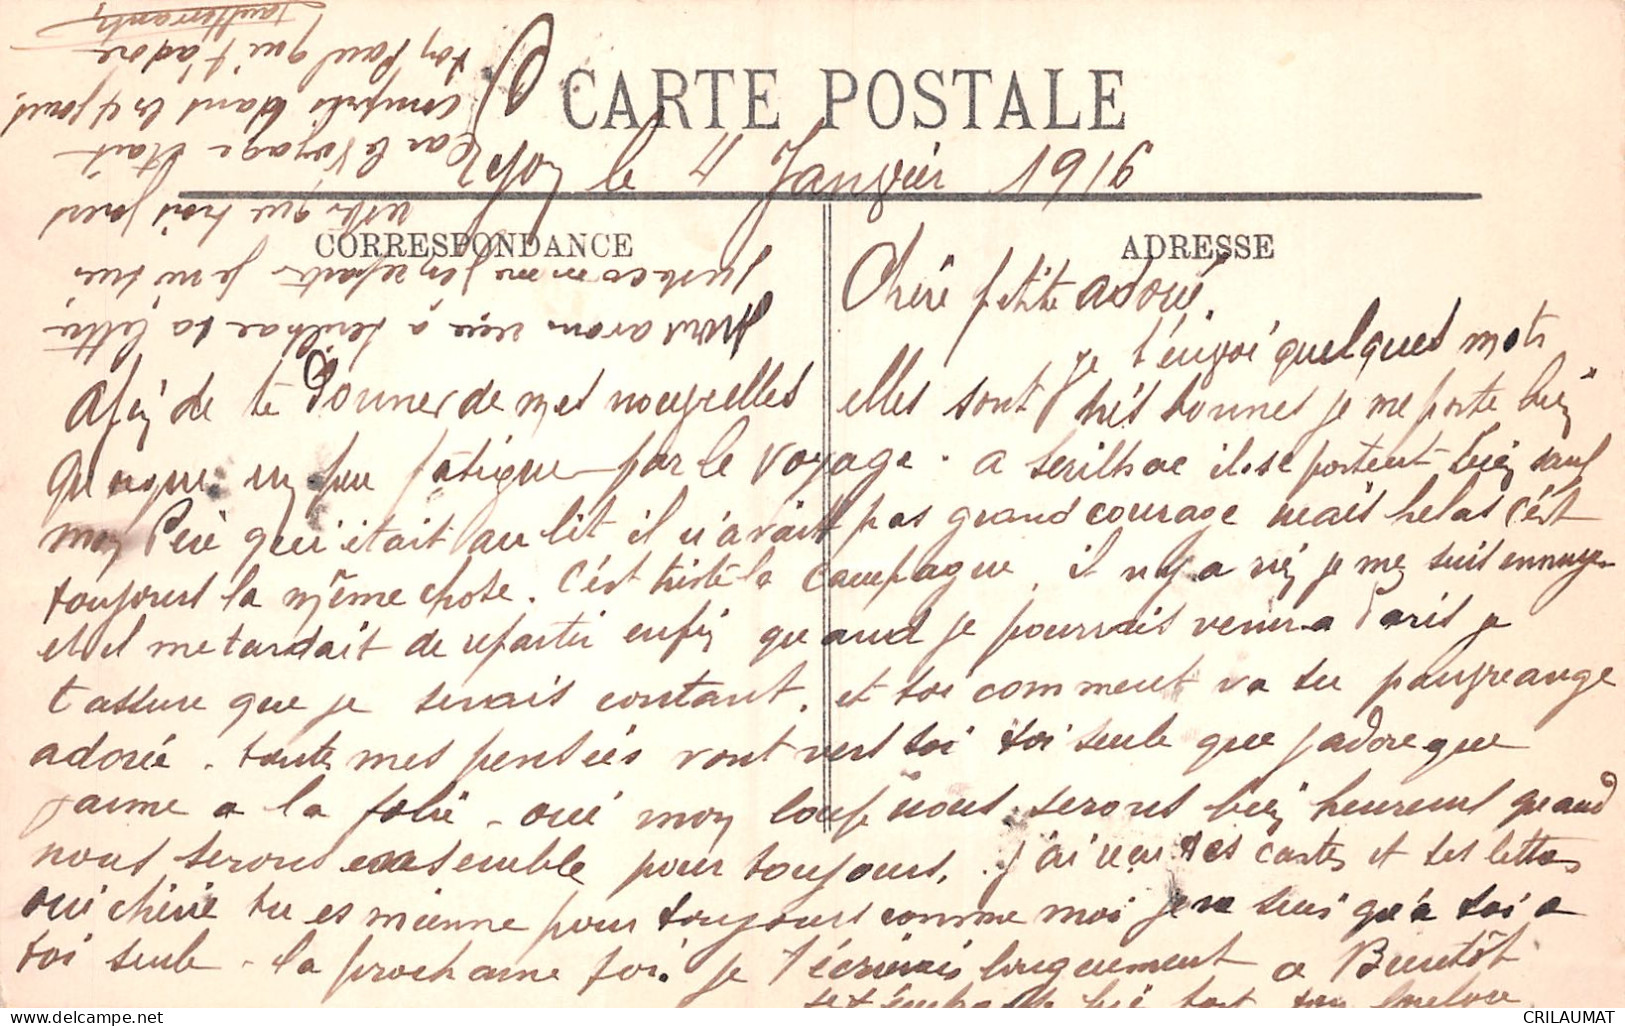 CARTE POSTALE
Lyon le 4 Janvier 1916
CORRESPONDANCE
ADRESSE
Chère petite adorée
je t'envoi quelques mots
afin de te donner de mes nouvelles elles sont très bonnes je me porte bien
quoique un peu fatigué par le voyage. a Seilhac il se portent bien sauf
mon Père qui était au lit il n'avait pas grand courage mais helas c'est
toujours la même chose. C'est triste la campagne, il n'y a rien je me suis ennuyé
et il me tardait de repartir enfin quand je pourrais venir a Paris je
t'assure que je serais contant. et toi comment va tu pauvre ange
adorée. toute mes pensées vont vers toi toi seule que j'adore que
j'aime a la folie. oui mon loup nous serons bien heureux quand
nous serons ensemble pour toujours. j'ai reçu tes cartes et tes lettres
oui chérie tu es mienne pour toujours comme moi je ne suis qu'a toi a
toi seule. la prochaine foi. je t'écrirais longuement a Bientôt
bien fort ton
nous avons reçu a Seilhac ta lettre
juste comme j'en repartais je ni suis
resté que trois jours
car le voyage était
compris dans les 4 jours.
ton Paul qui t'adore